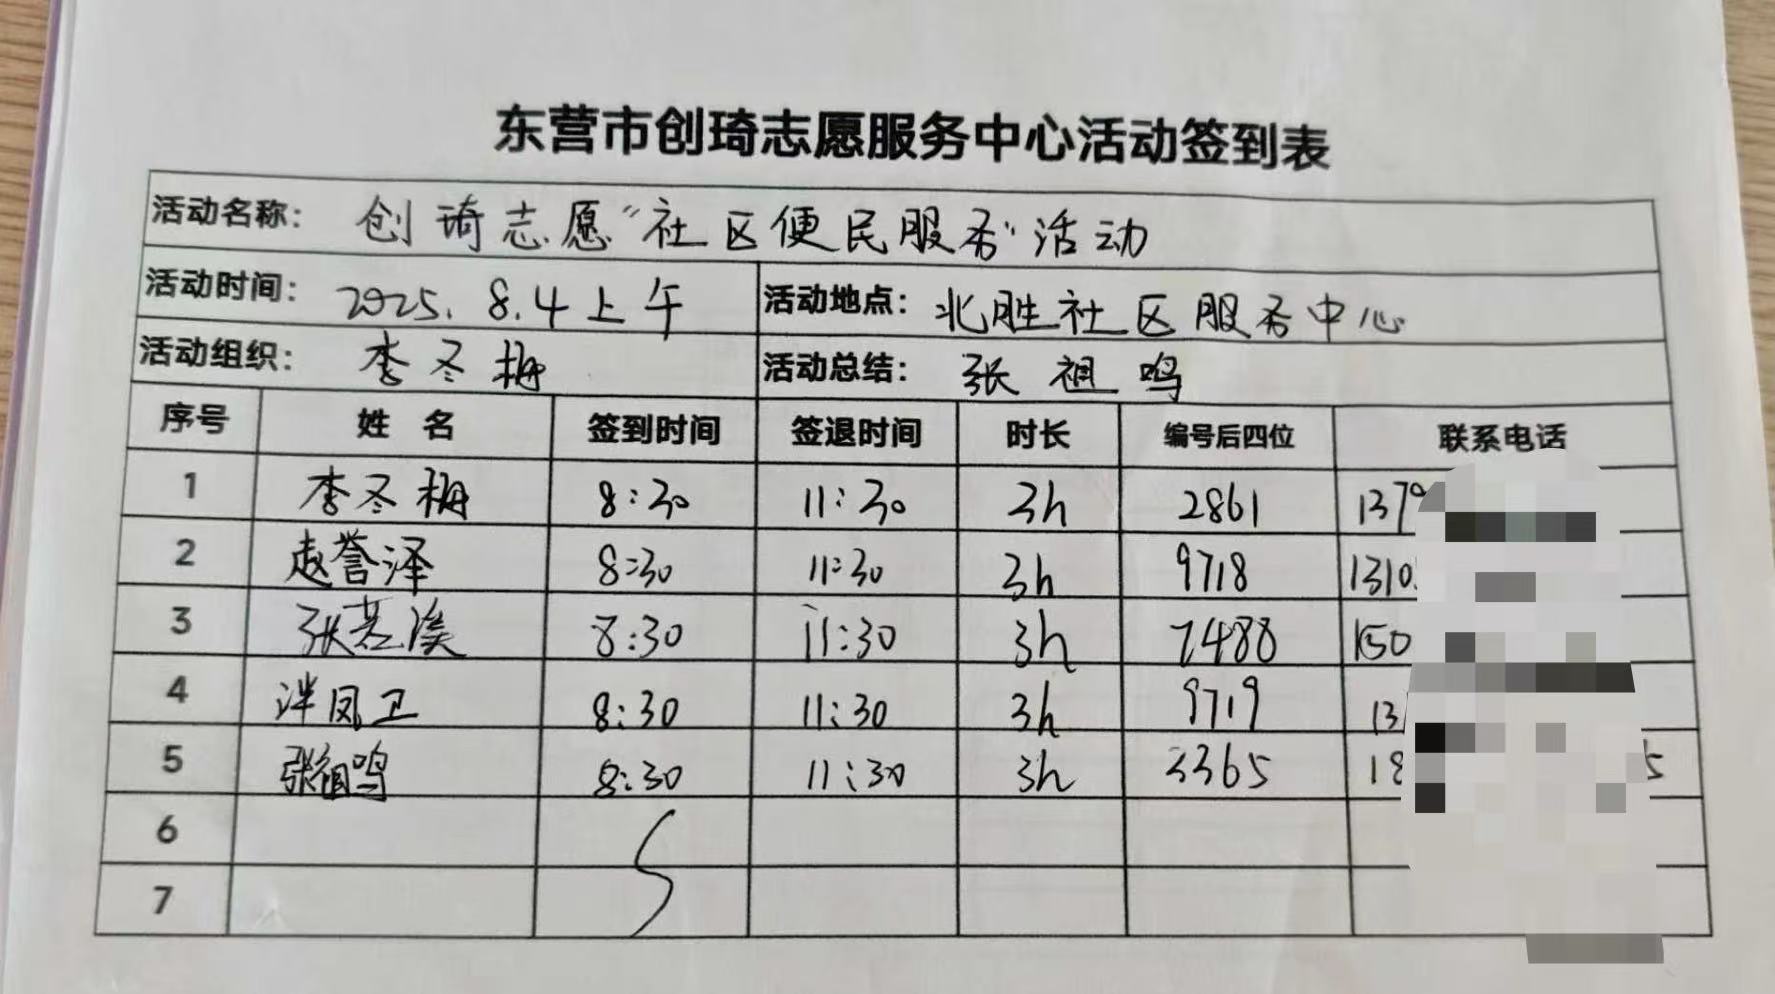 东营市创琦志愿服务中心活动签到表
活动名称: 创琦志愿"社区便民服务"活动
活动时间: 2025.8.4上午 活动地点: 北胜社区服务中心
活动组织: 李冬梅 活动总结: 张祖鸣
序号 姓名 签到时间 签退时间 时长 编号后四位 联系电话
1 李冬梅 8:30 11:30 3h 2861 137
2 赵誉泽 8:30 11:30 3h 9718 1310
3 张若溪 8:30 11:30 3h 7488 150
4 凤卫 8:30 11:30 3h 9719 13
5 张祖鸣 8:30 11:30 3h 3365 18 5
6
7